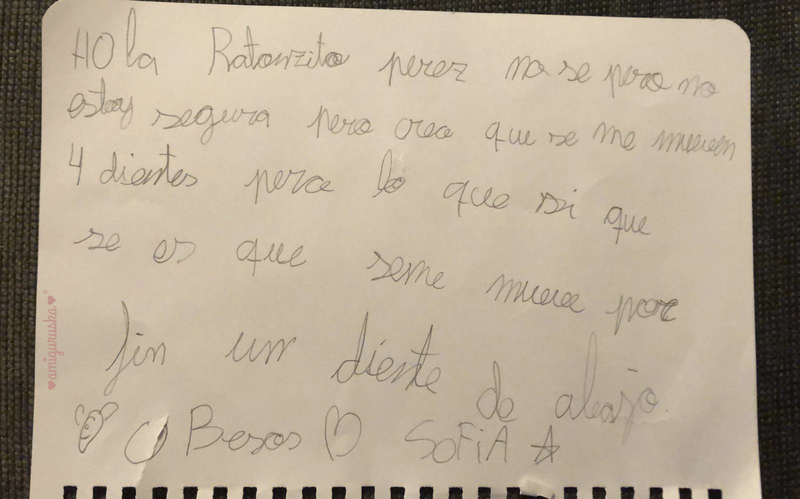 HOla Ratonzito perez no se pero no
estoy segura pero creo que se me mueven
4 dientes pero lo que si que
se es que seme mueve por
fin un diente de abajo
Besos SOFiA
amiguruska